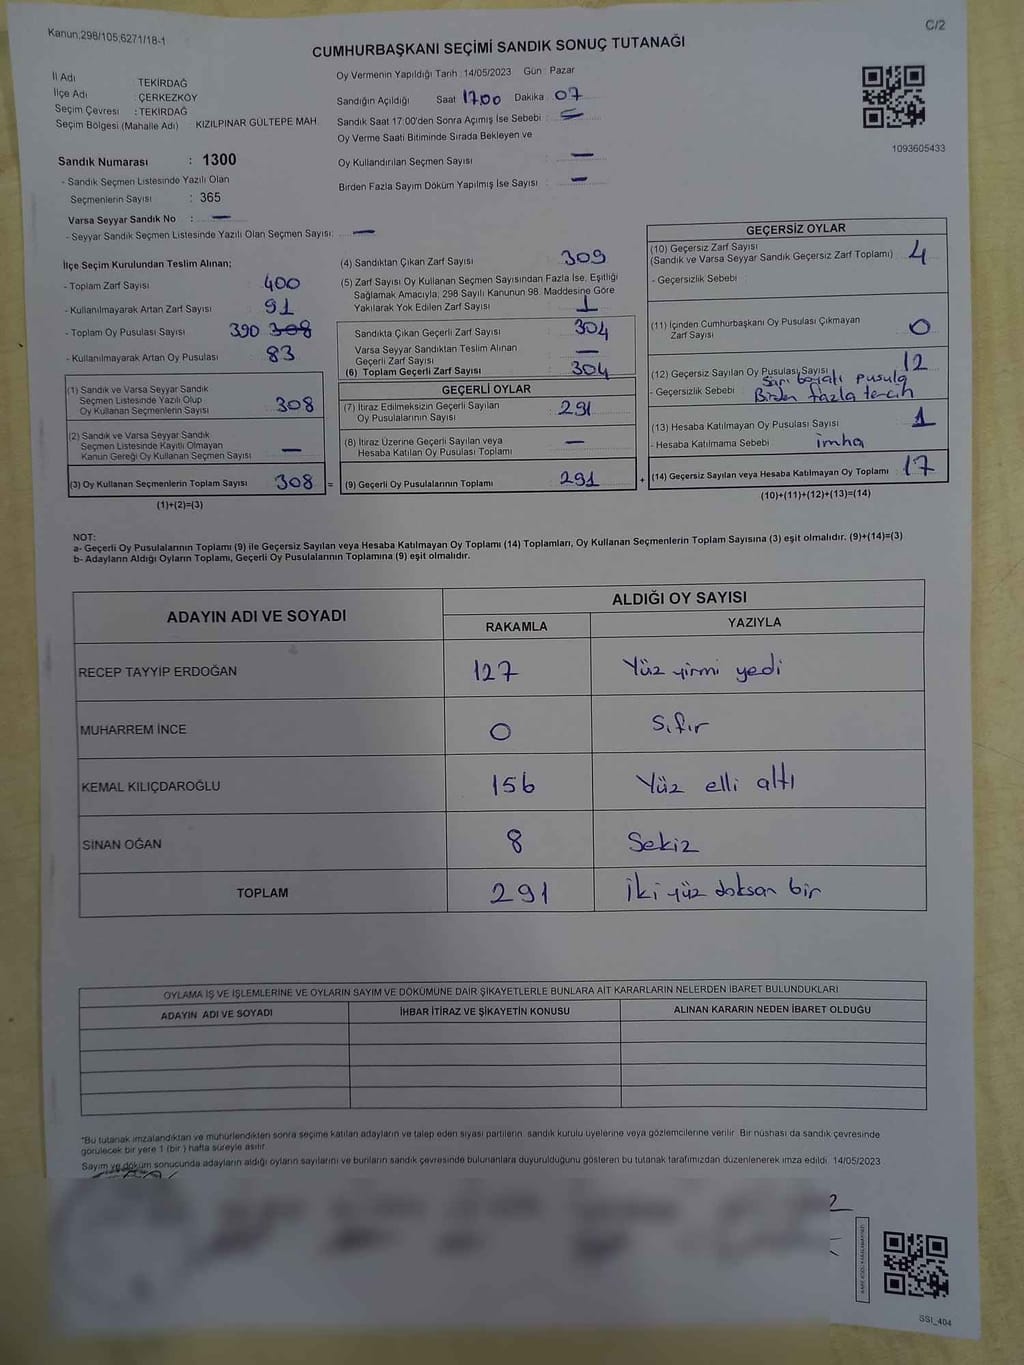 Kanun;298/105,6271/18-1
C/2
CUMHURBAŞKANI SEÇİMİ SANDIK SONUÇ TUTANAĞI
İl Adı : TEKİRDAĞ
İlçe Adı : ÇERKEZKÖY
Seçim Çevresi : TEKİRDAĞ
Seçim Bölgesi (Mahalle Adı) : KIZILPINAR GÜLTEPE MAH.
Sandık Numarası : 1300
- Sandık Seçmen Listesinde Yazılı Olan
Seçmenlerin Sayısı : 365
Varsa Seyyar Sandık No : —
- Seyyar Sandık Seçmen Listesinde Yazılı Olan Seçmen Sayısı: —
Oy Vermenin Yapıldığı Tarih : 14/05/2023 Gün : Pazar
Sandığın Açıldığı Saat 17.00 Dakika : 07
Sandık Saat 17:00'den Sonra Açımış İse Sebebi : —
Oy Verme Saati Bitiminde Sırada Bekleyen ve
Oy Kullandırılan Seçmen Sayısı : —
Birden Fazla Sayım Döküm Yapılmış İse Sayısı : —
1093605433
İlçe Seçim Kurulundan Teslim Alınan;
- Toplam Zarf Sayısı : 400
- Kullanılmayarak Artan Zarf Sayısı : 91
- Toplam Oy Pusulası Sayısı : 390 308
- Kullanılmayarak Artan Oy Pusulası : 83
(1) Sandık ve Varsa Seyyar Sandık
Seçmen Listesinde Yazılı Olup
Oy Kullanan Seçmenlerin Sayısı : 308
(2) Sandık ve Varsa Seyyar Sandık
Seçmen Listesinde Kayıtlı Olmayan
Kanun Gereği Oy Kullanan Seçmen Sayısı : —
(3) Oy Kullanan Seçmenlerin Toplam Sayısı : 308 =
(1)+(2)=(3)
(4) Sandıktan Çıkan Zarf Sayısı : 309
(5) Zarf Sayısı Oy Kullanan Seçmen Sayısından Fazla İse, Eşitliği
Sağlamak Amacıyla, 298 Sayılı Kanunun 98. Maddesine Göre
Yakılarak Yok Edilen Zarf Sayısı : 1
Sandıkta Çıkan Geçerli Zarf Sayısı : 304
Varsa Seyyar Sandıktan Teslim Alınan
Geçerli Zarf Sayısı : —
(6) Toplam Geçerli Zarf Sayısı : 304
GEÇERLİ OYLAR
(7) İtiraz Edilmeksizin Geçerli Sayılan
Oy Pusulalarının Sayısı : 291
(8) İtiraz Üzerine Geçerli Sayılan veya
Hesaba Katılan Oy Pusulası Toplamı : —
(9) Geçerli Oy Pusulalarının Toplamı : 291 +
GEÇERSİZ OYLAR
(10) Geçersiz Zarf Sayısı
(Sandık ve Varsa Seyyar Sandık Geçersiz Zarf Toplamı) : 4
- Geçersizlik Sebebi :
(11) İçinden Cumhurbaşkanı Oy Pusulası Çıkmayan
Zarf Sayısı : 0
(12) Geçersiz Sayılan Oy Pusulası Sayısı : 12
Sarı boyalı pusula
- Geçersizlik Sebebi : Birden fazla tercih
(13) Hesaba Katılmayan Oy Pusulası Sayısı : 1
- Hesaba Katılmama Sebebi : imha
(14) Geçersiz Sayılan veya Hesaba Katılmayan Oy Toplamı : 17
(10)+(11)+(12)+(13)=(14)
NOT:
a- Geçerli Oy Pusulalarının Toplamı (9) ile Geçersiz Sayılan veya Hesaba Katılmayan Oy Toplamı (14) Toplamları, Oy Kullanan Seçmenlerin Toplam Sayısına (3) eşit olmalıdır. (9)+(14)=(3)
b- Adayların Aldığı Oyların Toplamı, Geçerli Oy Pusulalarının Toplamına (9) eşit olmalıdır.
ADAYIN ADI VE SOYADI
ALDIĞI OY SAYISI
RAKAMLA YAZIYLA
RECEP TAYYİP ERDOĞAN 127 Yüz yirmi yedi
MUHARREM İNCE 0 Sıfır
KEMAL KILIÇDAROĞLU 156 Yüz elli altı
SİNAN OĞAN 8 Sekiz
TOPLAM 291 İki yüz doksan bir
OYLAMA İŞ VE İŞLEMLERİNE VE OYLARIN SAYIM VE DÖKÜMÜNE DAİR ŞİKAYETLERLE BUNLARA AİT KARARLARIN NELERDEN İBARET BULUNDUKLARI
ADAYIN ADI VE SOYADI İHBAR İTİRAZ VE ŞİKAYETİN KONUSU ALINAN KARARIN NEDEN İBARET OLDUĞU
*Bu tutanak imzalandıktan ve mühürlendikten sonra seçime katılan adayların ve talep eden siyasi partilerin sandık kurulu üyelerine veya gözlemcilerine verilir. Bir nüshası da sandık çevresinde
görülecek bir yere 1 (bir) hafta süreyle asılır.
Sayım ve döküm sonucunda adayların aldığı oyların sayılarını ve bunların sandık çevresinde bulunanlara duyurulduğunu gösteren bu tutanak tarafımızdan düzenlenerek imza edildi. 14/05/2023
SSI_404